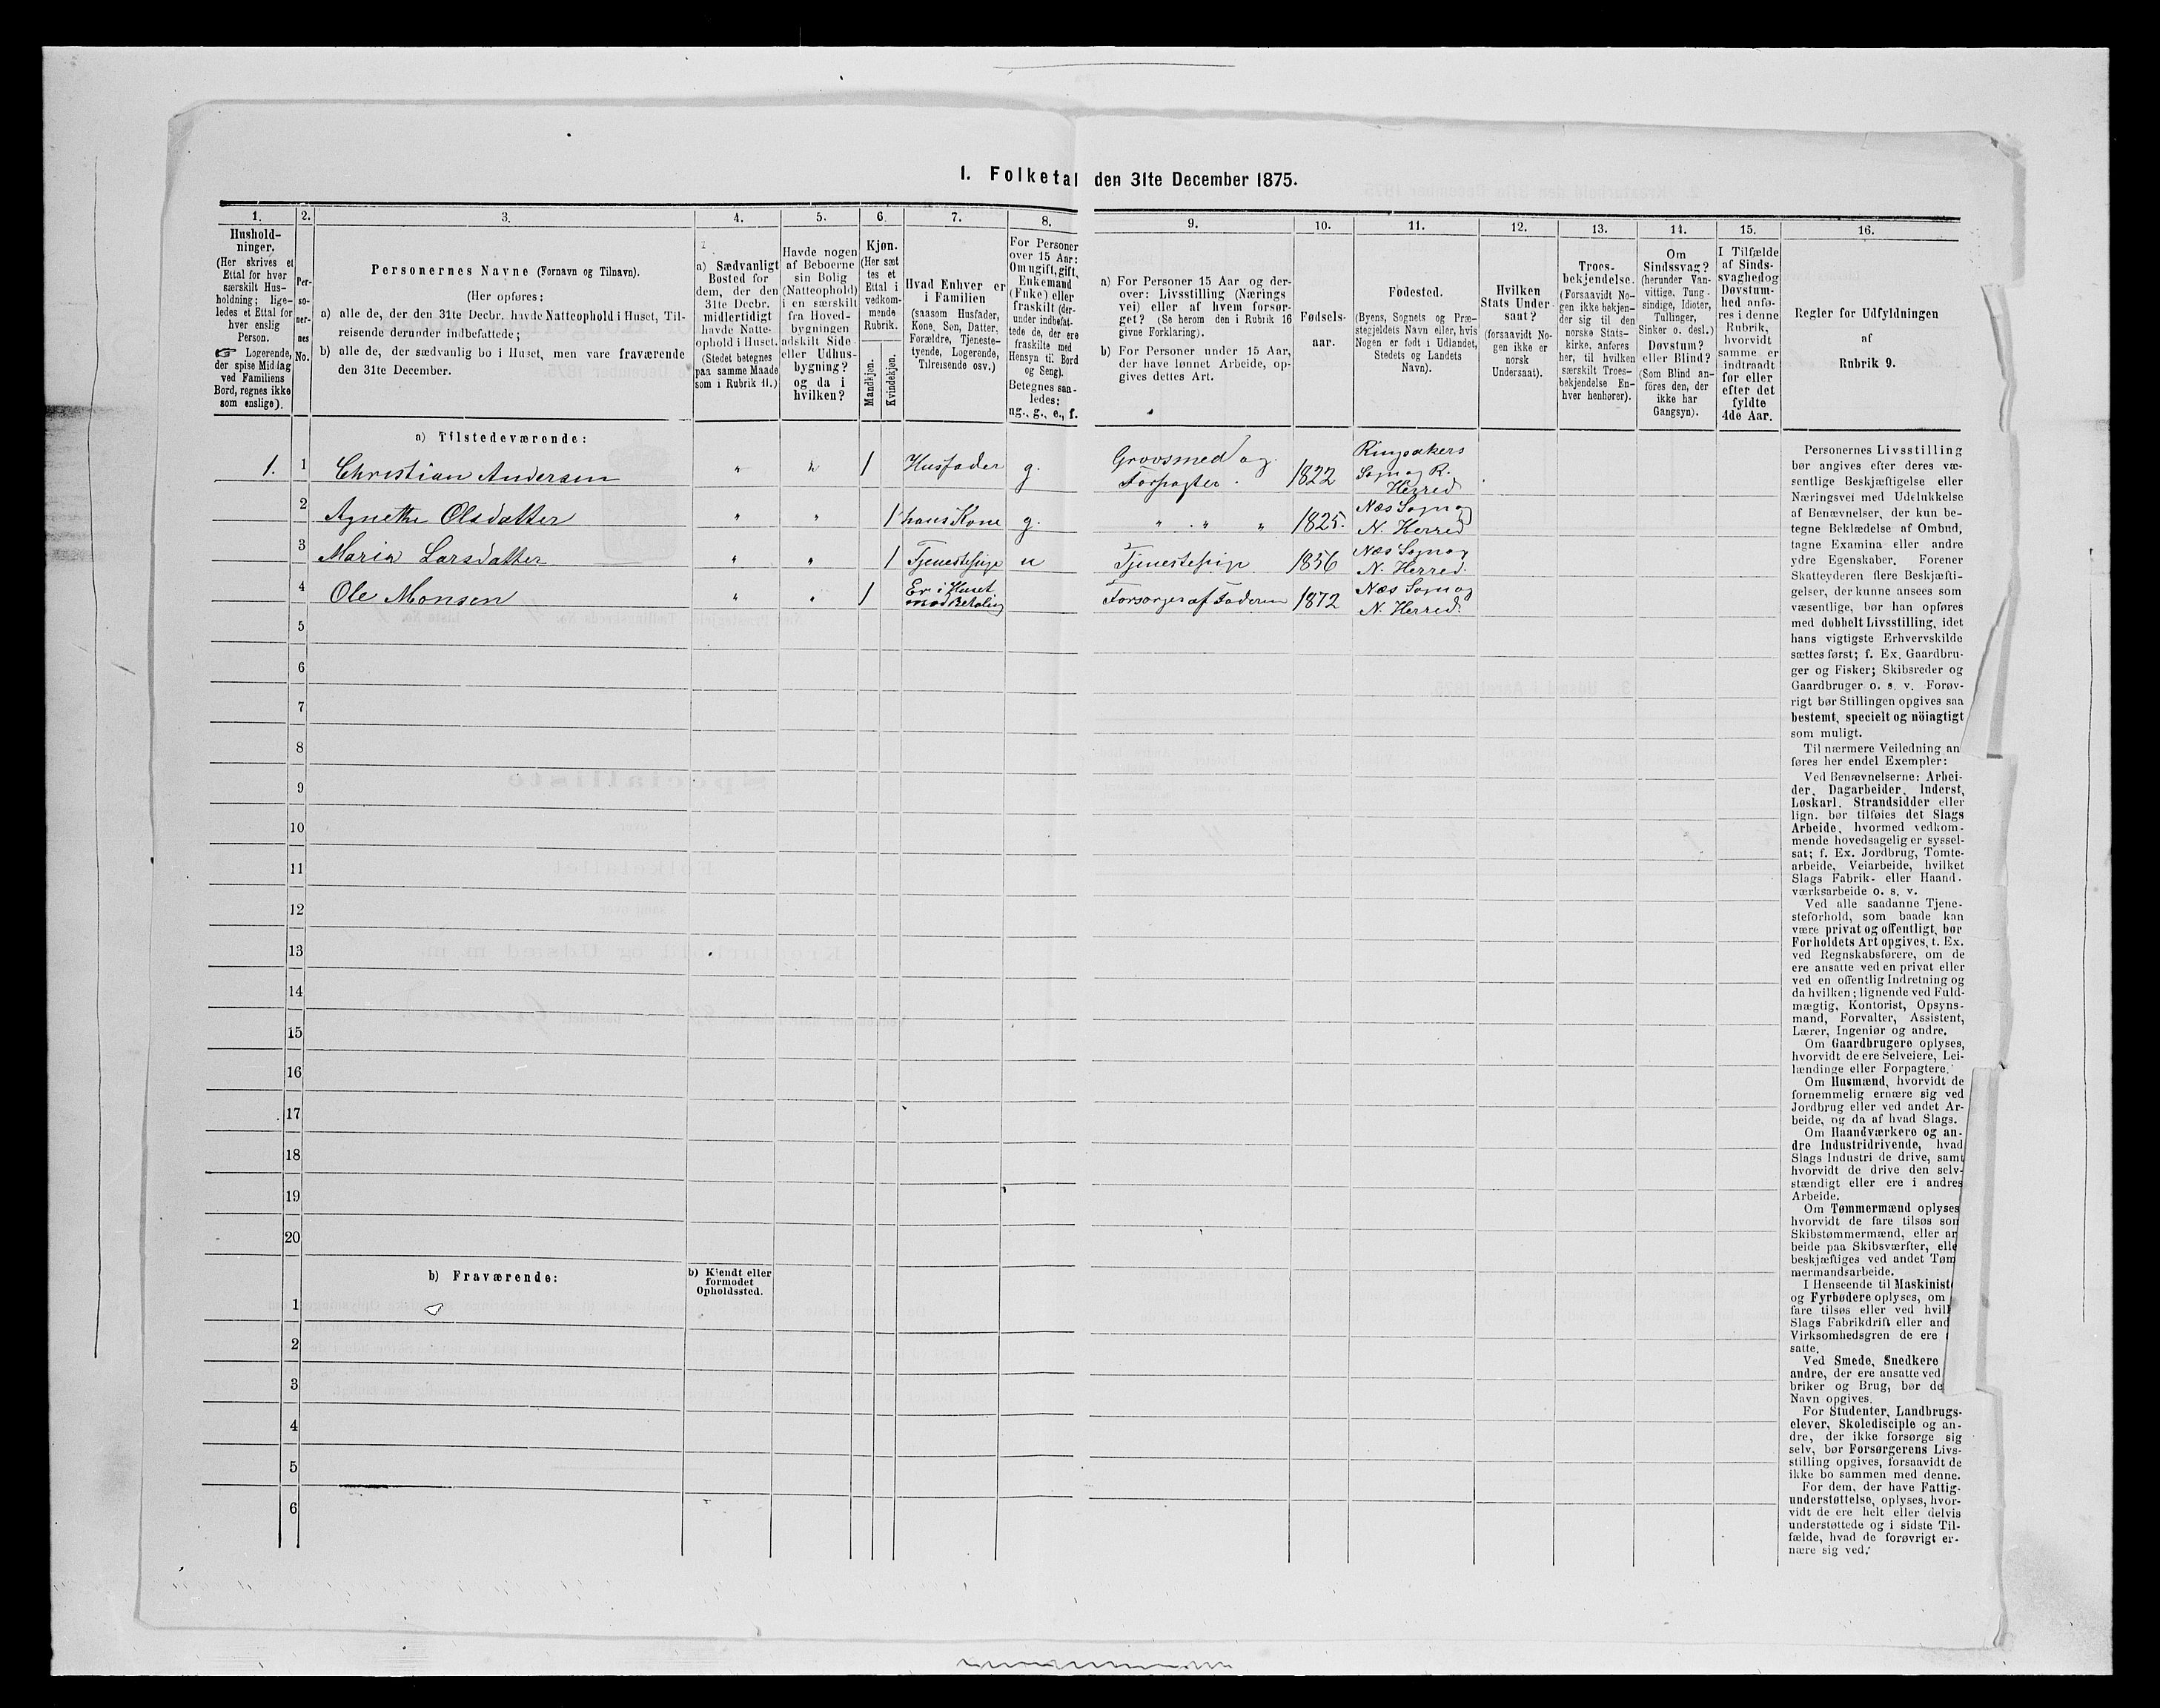 1. Folketal den 31te December 1875.
1.
2.
3.
4.
5.
6.
7.
8.
9.
10.
11.
12.
13.
14.
15.
16.
Hushold-
ninger.
(Her skrives et
Ettal for hver
særskilt Hus-
holdning; lige-
ledes et Ettal for
hver enslig
Person.
☞ Logerende,
der spise Middag
ved Familiens
Bord, regnes ikke
som enslige).
Per-
so-
ner-
nes
No.
Personernes Navne (Fornavn og Tilnavn).
(Her opføres:
a) alle de, der den 31te Decbr. havde Natteophold i Huset, Til-
reisende derunder indbefattede;
b) alle de, der sædvanlig bo i Huset, men vare fraværende
den 31te December.
a) Sædvanligt
Bosted for
dem, der den
31te Decbr.
midlertidigt
havde Natte-
ophold i Huset.
(Stedet betegnes
paa samme Maade
som i Rubrik 11.)
Havde nogen
af Beboerne
sin Bolig
(Natteophold)
i en særskilt
fra Hoved-
bygningen
adskilt Side-
eller Udhus-
bygning?
og da i
hvilken?
Kjøn.
(Her sæt
tes et
Ettal i
vedkom-
mende
Rubrik.
Mandkjøn.
Kvindekjøn.
Hvad Enhver er
i Familien
(saasom Husfader,
Kone, Søn, Datter,
Forældre, Tjeneste-
tyende, Logerende,
Tilreisende osv.)
For Personer
over 15 Aar:
Om ugift, gift,
Enkemand
(Enke) eller
fraskilt (der-
under indbefat-
tede de, der ere
fraskilte med
Hensyn til Bord
og Seng).
Betegnes saa-
ledes:
ug., g., e., f.
a) For Personer 15 Aar og der-
over: Livsstilling (Nærings
vei) eller af hvem forsør-
get? (Se herom den i Rubrik 16
givne Forklaring).
b) For Personer under 15 Aar,
der have lønnet Arbeide, op-
gives dettes Art.
Fødsels-
aar.
Fødested.
(Byens, Sognets og Præ-
stegjeldets Navn eller, hvis
Nogen er født i Udlandet,
Stedets og Landets
Navn).
Hvilken
Stats Under-
saat?
(forsaavidt No-
gen ikke er
norsk
Undersaat).
Troes-
bekjendelse.
(Forsaavidt No-
gen ikke bekjen-
der sig til den
norske Stats-
kirke, anføres
her, til hvilken
særskilt Troes-
bekjendelse En-
hver henhører).
Om
Sindssvag?
(herunder Van-
vittige, Tung-
sindige, Idioter,
Tullinger,
Sinker o. desl.)
Døvstum?
eller Blind?
(Som Blind an-
føres den, der
ikke har
Gangsyn).
I Tilfælde
af Sinds-
svaghed og
Døvstum-
hed anfø-
res i denne
Rubrik,
hvorvidt
samme er
indtraadt
før eller
efter det
fyldte
4de Aar.
Regler for Udfyldningen
af
Rubrik 9.
a) Tilstedeværende:
1. 1 Christian Andersen " " 1 Husfader g. Grovsmed og Forpagter. 1822 Ringsakers Sogn og R. Herred
2 Agnethe Olsdatter " " 1 hans Kone g. " " " 1825. Næs Sogn og N. Herred
3 Maria Larsdatter " " 1 Tjenestepige u Tjenestepige 1856 Næs Sogn og N. Herred.
4 Ole Monsen " " 1 Er i Huset mod Betaling Forsørges af Faderen 1872 Næs Sogn og N. Herred.
5
6
7
8
9
10
11
12
13
14
15
16
17
18
19
20
b) Fraværende:
b) Kjendt eller
formodet
Opholdssted.
1
2
3
4
5
6
Personernes Livsstilling
bør angives efter deres væ-
sentlige Beskjæftigelse eller
Næringsvei med Udelukkelse
af Benævnelser, der kun be-
tegne Beklædelse af Ombud,
tagne Examina eller andre
ydre Egenskaber. Forener
Skatteyderen flere Beskjæfti-
gelser, der kunne ansees som
væsentlige, bør han opføres
med dobbelt Livsstilling, idet
hans vigtigste Erhvervskilde
sættes først; f. Ex. Gaardbru-
ger og Fisker; Skibsreder og
Gaardbruger o. s. v. Forøv-
rigt bør Stillingen opgives saa
bestemt, specielt og nöiagtigt
som muligt.
Til nærmere Veiledning an
føres her endel Exempler:
Ved Benævnelserne: Arbei-
der, Dagarbeider, Inderst,
Løskarl, Strandsidder eller
lign. bør tilføies det Slags
Arbeide, hvormed vedkom-
mende hovedsagelig er syssel-
sat; f. Ex. Jordbrug, Tomte-
arbeide, Veiarbeide, hvilket
Slags Fabrik- eller Haand-
værksarbeide o. s. v.
Ved alle saadanne Tjene-
steforhold, som baade kan
være privat og offentligt, bør
Forholdets Art opgives, f. Ex.
ved Regnskabsførere, om de
ere ansatte ved en privat eller
ved en offentlig Indretning og
da hvilken; lignende ved Fuld-
mægtig, Kontorist, Opsyns-
mand, Forvalter, Assistent,
Lærer, Ingeniør og andre.
Om Gaardbrugere oplyses,
hvorvidt de ere Selveiere, Lei-
lændinge eller Forpagtere.
Om Husmænd, hvorvidt de
fornemmelig ernære sig ved
Jordbrug eller ved andet Ar-
beide, og da af hvad Slags.
Om Haandværkere og an-
dre Industridrivende, hvad
Slags Industri de drive, samt
hvorvidt de drive den selv-
stændigt eller ere i andres
Arbeide.
Om Tømmermænd oplyses
hvorvidt de fare tilsøs som
Skibstømmermænd, eller ar
beide paa Skibsværfter, elle
beskjæftiges ved andet Tøm
mermandsarbeide.
I Henseende til Maskinist
og Fyrbødere oplyses, om
fare tilsøs eller ved hvil
Slags Fabrikdrift eller and
Virksomhedsgren de ere
satte.
Ved Smede, Snedkere
andre, der ere ansatte ved
briker og Brug, bør de
Navn opgives.
For Studenter, Landbrugs-
elever, Skoledisciple og an-
dre, der ikke forsørge sig
selv, bør Forsørgerens Livs-
stilling opgives, forsaavidt de
ikke bo sammen med denne.
For dem, der have Fattig-
understøttelse, oplyses, hvor-
vidt de ere helt eller delvis
understøttede og i sidste Til-
fælde, hvad de forøvrigt er-
nære sig ved.